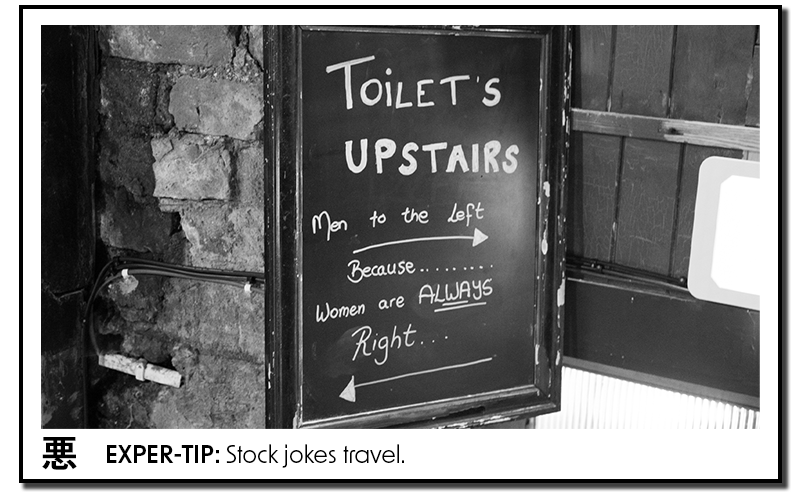 TOiLET'S
UPSTAIRS
Men to the Left
Because........
Women are ALWAYS
Right...
悪 EXPER-TIP: Stock jokes travel.